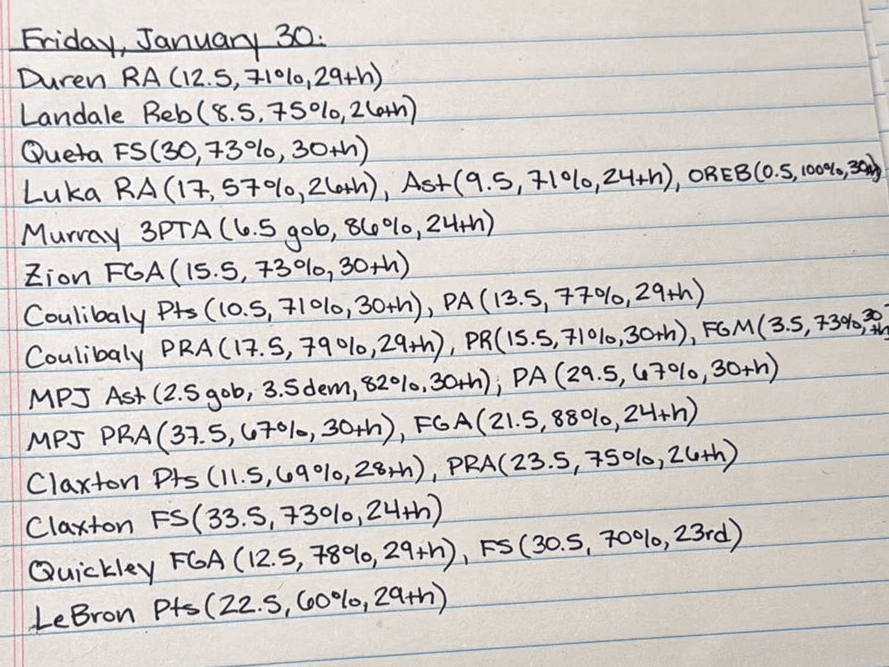 Friday, January 30:
Duren RA (12.5, 71%, 29th)
Landale Reb (8.5, 75%, 26th)
Queta FS (30, 73%, 30th)
Luka RA (17, 57%, 26th), Ast (9.5, 71%, 24th), OREB (0.5, 100%, 30th)
Murray 3PTA (6.5 gob, 86%, 24th)
Zion FGA (15.5, 73%, 30th)
Coulibaly Pts (10.5, 71%, 30th), PA (13.5, 77%, 29th)
Coulibaly PRA (17.5, 79%, 29th), PR (15.5, 71%, 30th), FGM (3.5, 73%, 30th
MPJ Ast (2.5 gob, 3.5 dem, 82%, 30th), PA (29.5, 67%, 30th)
MPJ PRA (37.5, 67%, 30th), FGA (21.5, 88%, 24th)
Claxton Pts (11.5, 69%, 28th), PRA (23.5, 75%, 26th)
Claxton FS (33.5, 73%, 24th)
Quickley FGA (12.5, 78%, 29th), FS (30.5, 70%, 23rd)
LeBron Pts (22.5, 60%, 29th)